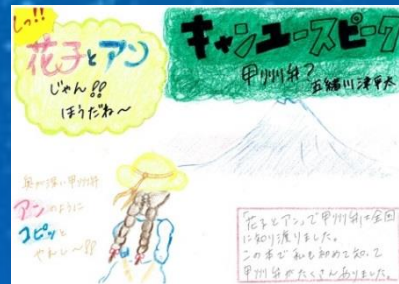 しっ!!
花子とアン
じゃん!!
ほうだね〜
キャンユースピーク
甲州弁?
五緒川津平太
奥が深い甲州弁
アンのように
コピッと
やれし〜!!
「花子とアン」で甲州弁は全国
に知り渡りました。
この本で私も初めて知って
甲州弁がたくさんありました。